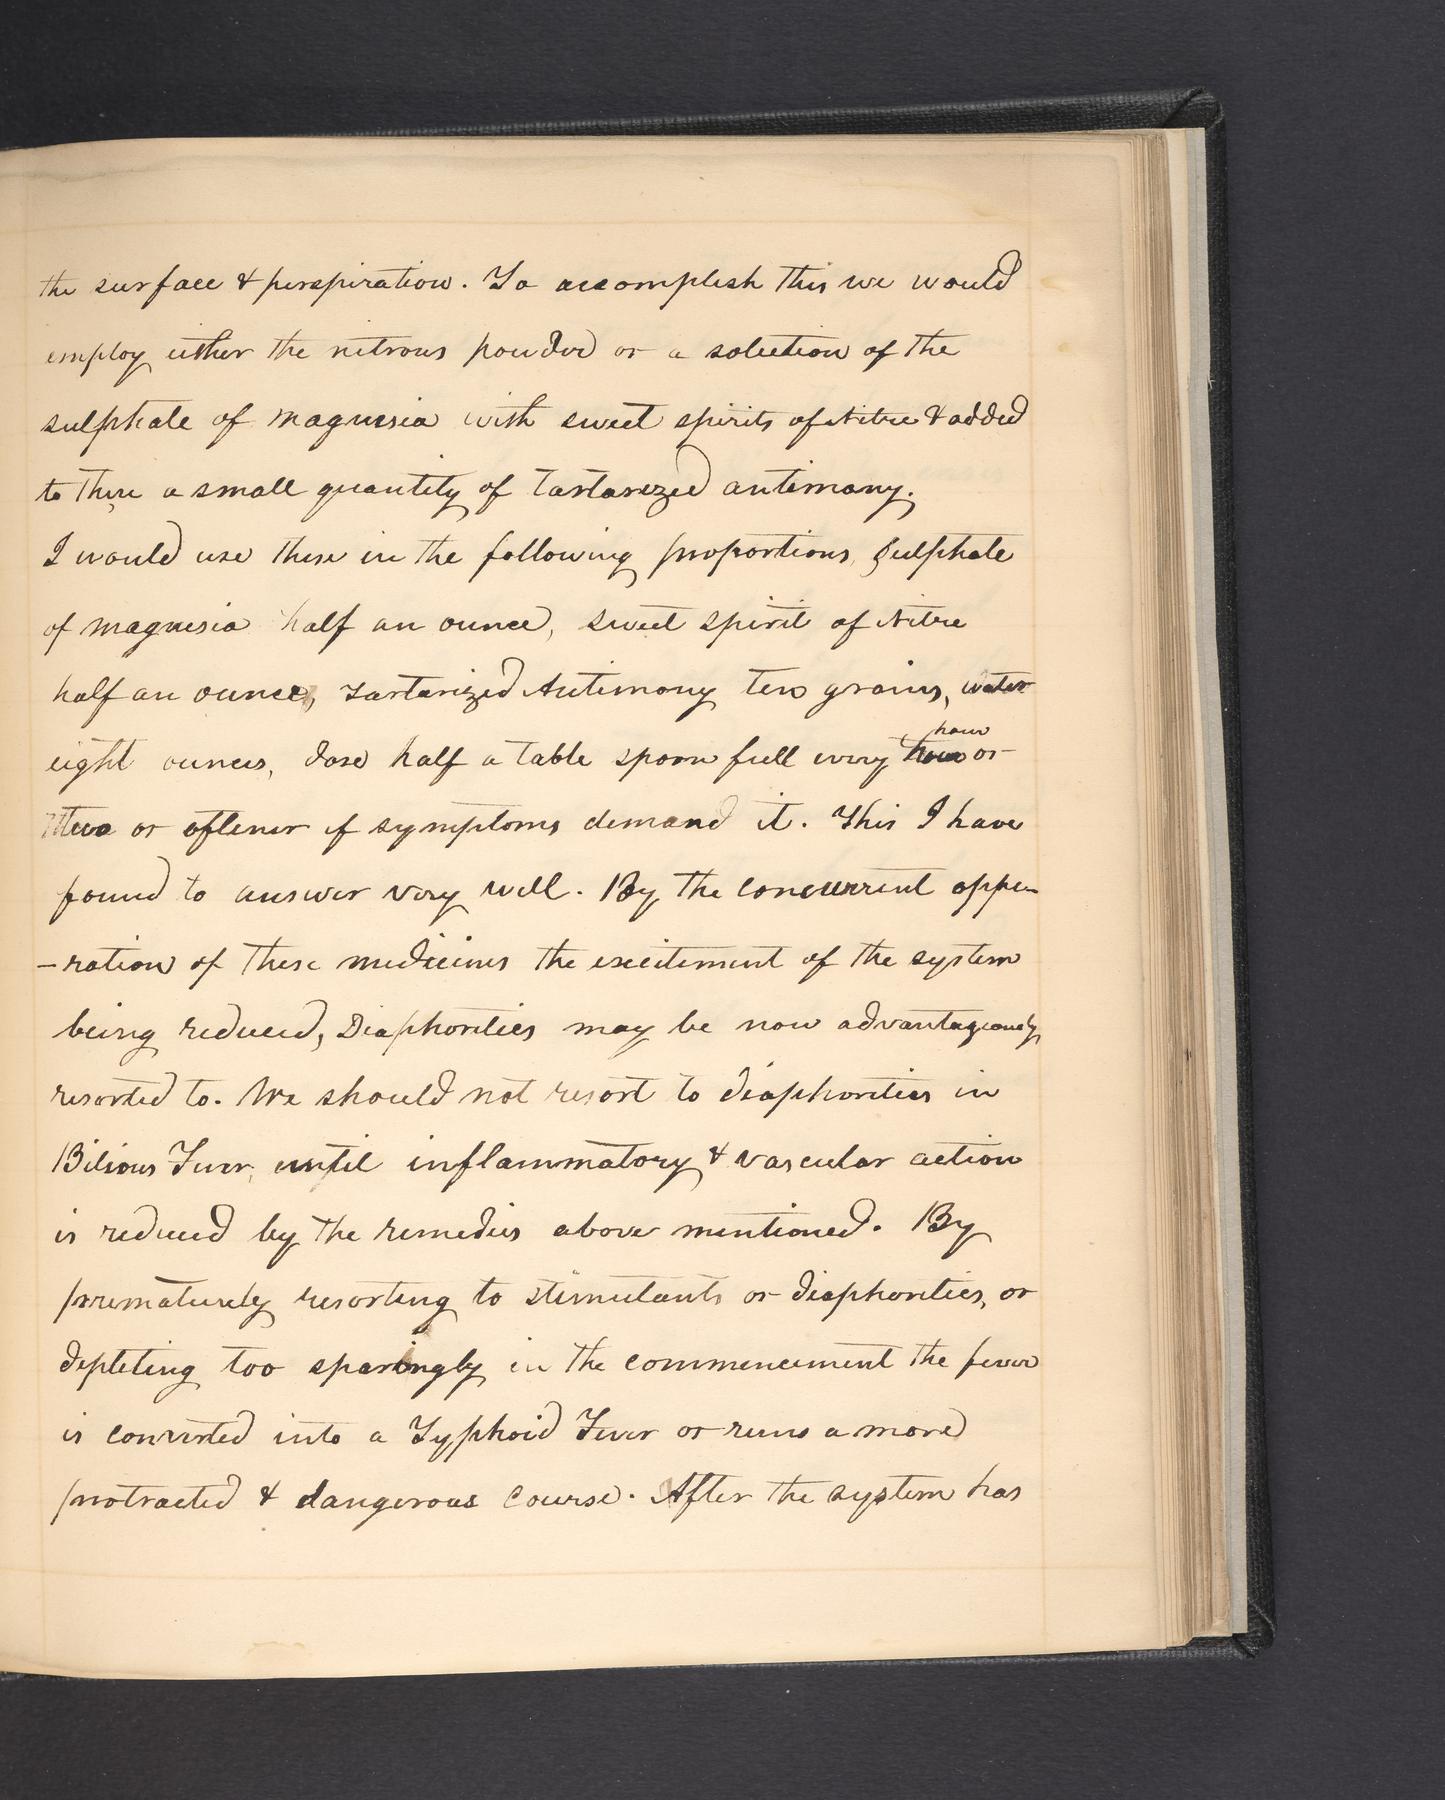 the surface & perspiration. To accomplish this we would
employ either the nitrous powder or a solution of the
sulphate of magnesia with sweet spirits of Nitre & added
to these a small quantity of tartarized antimony.
I would use these in the following proportions, Sulphate
of magnesia half an ounce, sweet spirit of Nitre
half an ounce, Tartarized Antimony ten grains, water
hour
eight ounces, dose half a table spoon full every or
two or oftener if symptoms demand it. This I have
found to answer very well. By the concurrent oppe-
-ration of these medicines the excitement of the system
being reduced, Diaphoretics may be now advantageously
resorted to. We should not resort to diaphoretics in
Bilious Fever, until inflammatory & vascular action
is reduced by the remedies above mentioned. By
prematurely resorting to stimulants or diaphoretics, or
depleting too sparingly in the commencement the fever
is converted into a Typhoid Fever or runs a more
protracted & dangerous course. After the system has